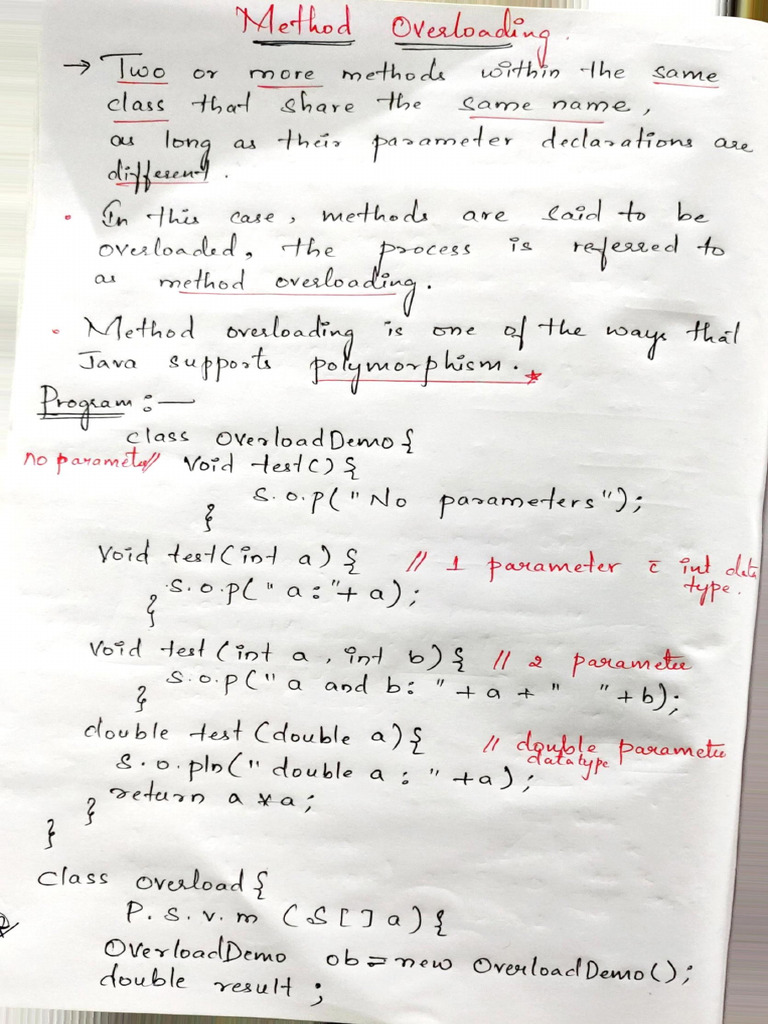 Method Overloading.
→ Two or more methods within the same
class that share the same name,
as long as their parameter declarations are
different.
• In this case, methods are said to be
overloaded, the process is referred to
as method overloading.
• Method overloading is one of the ways that
Java supports polymorphism. ★
Program :—
class OverloadDemo {
no parameter// void test() {
S.o.p("No parameters");
}
void test(int a) { // 1 parameter c̄ int data
type.
S.o.p("a:"+ a);
}
void test (int a, int b) { // 2 parameter
S.o.p("a and b: " + a + " " + b);
}
double test (double a) { // double parameter
datatype
S.o.pln("double a : " +a);
return a * a;
}
}
class overload {
P.S.v.m (S[] a) {
OverloadDemo ob = new OverloadDemo();
double result ;